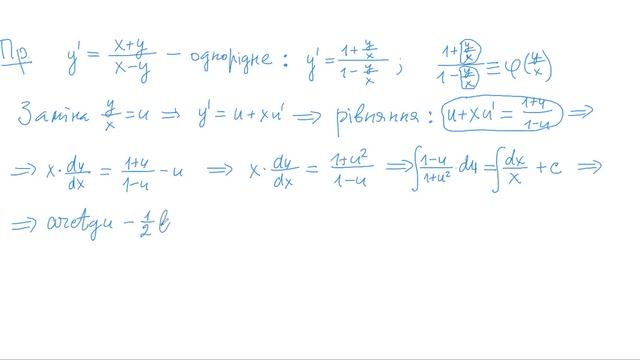 Пр. y' = (x+y)/(x−y) − однорідне: y' = (1+y/x)/(1−y/x); (1+y/x)/(1−y/x) ≡ φ(y/x)
Заміна y/x = u ⇒ y' = u + xu' ⇒ рівняння: u + xu' = (1+u)/(1−u) ⇒
⇒ x · du/dx = (1+u)/(1−u) − u ⇒ x · du/dx = (1+u²)/(1−u) ⇒ ∫ (1−u)/(1+u²) · du = ∫ dx/x + c ⇒
⇒ arctgu − 1/2 l